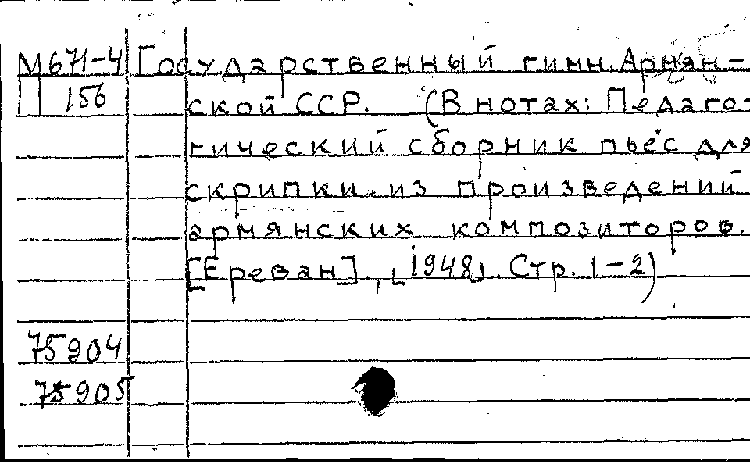 М671-4 Государственный гимн Армян-
156 ской ССР. (В нотах: Педаго-
гический сборник пьес для
скрипки из произведений
армянских композиторов.
[Ереван], 1948. Стр. 1-2)
75904
75905